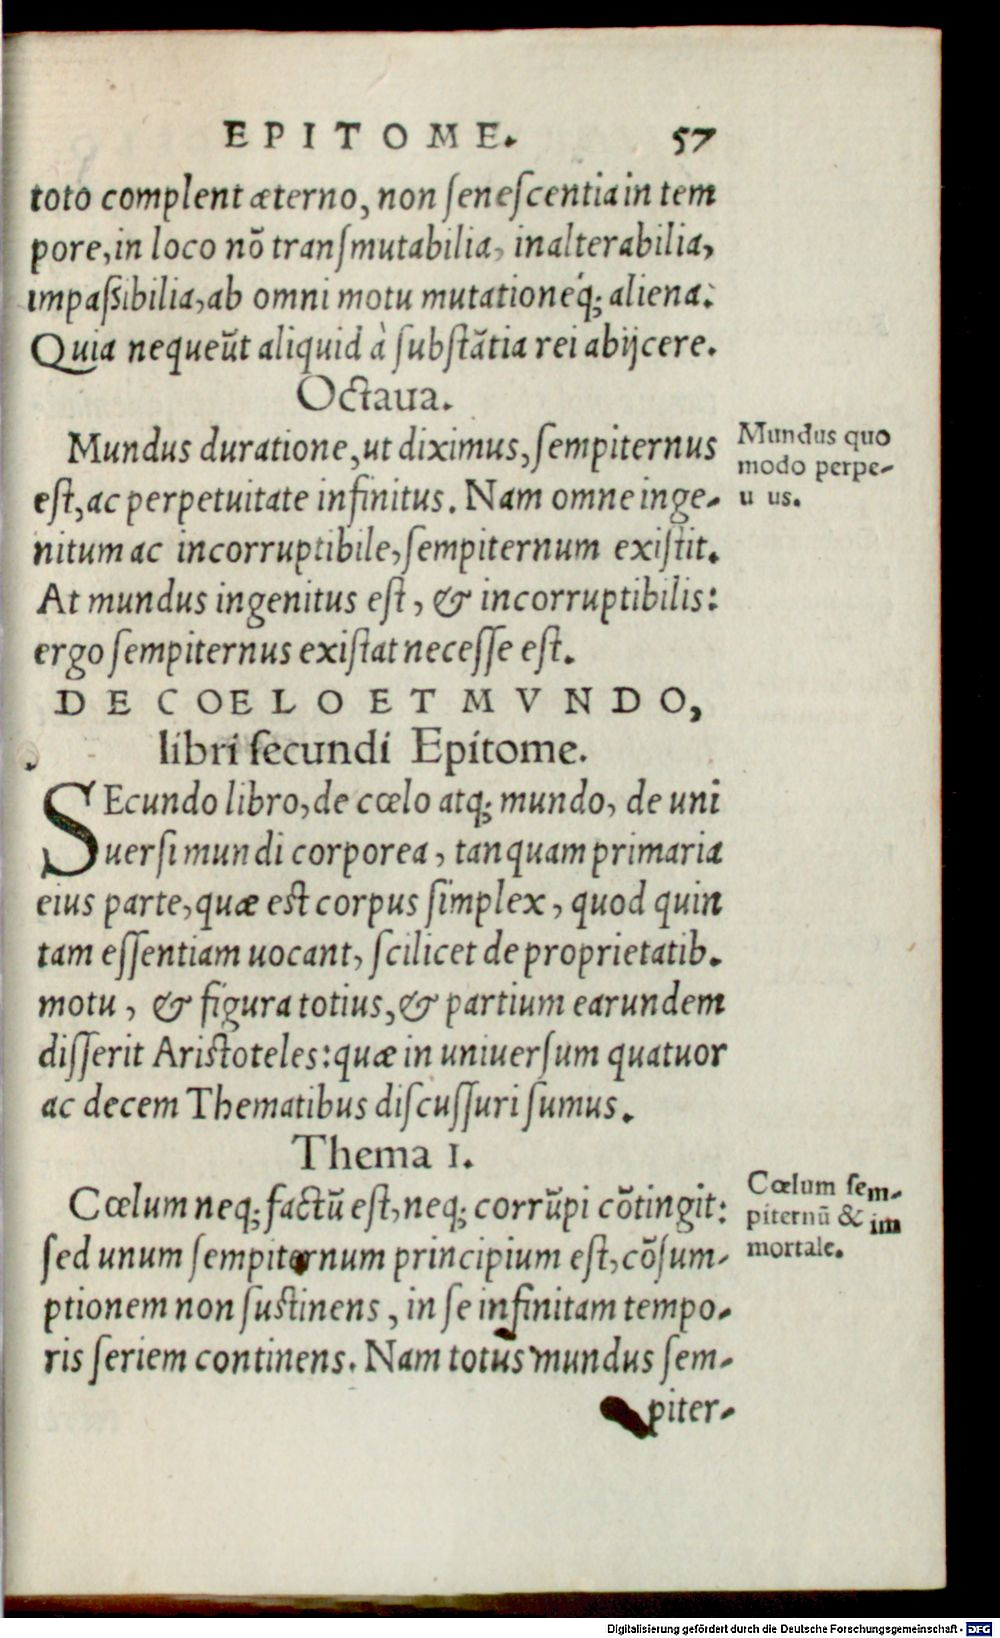 EPITOME. 57
toto complent æterno, non ſeneſcentia in tem
pore, in loco nō tranſmutabilia, inalterabilia,
impaſsibilia, ab omni motu mutationeq́; aliena:
Quia nequeūt aliquid à ſubſtātia rei abijcere.
Octaua.
Mundus duratione, ut diximus, ſempiternus
eſt, ac perpetuitate infinitus. Nam omne inge-
nitum ac incorruptibile, ſempiternum exiſtit.
At mundus ingenitus eſt, & incorruptibilis:
ergo ſempiternus exiſtat neceſſe eſt.
Mundus quo
modo perpe-
u us.
DE COELO ET MVNDO,
libri ſecundi Epitome.
SEcundo libro, de cœlo atq; mundo, de uni
uerſi mundi corporea, tanquam primaria
eius parte, quæ eſt corpus ſimplex, quod quin
tam eſſentiam uocant, ſcilicet de proprietatib.
motu, & figura totius, & partium earundem
diſſerit Ariſtoteles: quæ in uniuerſum quatuor
ac decem Thematibus diſcuſſuri ſumus.
Thema I.
Cœlum neq; factū eſt, neq; corrūpi cōtingit:
ſed unum ſempiternum principium eſt, cōſum-
ptionem non ſuſtinens, in ſe infinitam tempo-
ris ſeriem continens. Nam totus mundus ſem-
piter-
Cœlum ſem-
piternū & im
mortale.
Digitalisierung gefördert durch die Deutsche Forschungsgemeinschaft - DFG